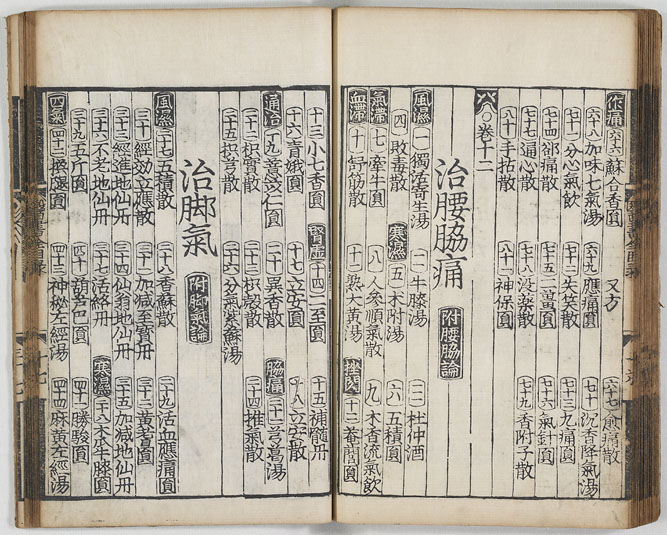 作痛 六六 蘇合香圓 又方 六七 愈痛散
六十八 加味七氣湯 六十九 應痛圓 七十 沉香降氣湯
七十一 分心氣飲 七十二 失笑散 七十三 九痛圓
七十四 却痛散 七十五 二薑圓 七十六 氣針圓
七十七 通心散 七十八 没藥散 七十九 香附子散
八十 手拈散 八十一 神保圓
〇卷十二
治腰脇痛 附腰脇論
風濕 一 獨活寄生湯 二 牛膝湯 三 杜仲酒
四 敗毒散 寒濕 五 朮附湯 六 五積圓
氣滯 七 牽牛圓 八 人參順氣散 九 木香流氣飲
血滯 十 舒筋散 十一 熟大黃湯 挫閃 十二 菴䕡圓
十三 小七香圓 腎虛 十四 二至圓 十五 補髓丹
十六 青娥圓 十七 立安圓 十八 立安散
通治 十九 薏苡仁圓 二十 異香散 脇痛 二十一 芎葛湯
二十二 枳實散 二十三 枳殼散 二十四 推氣散
二十五 枳芎散 二十六 分氣紫蘇湯
治脚氣 附脚氣論
風濕 二十七 五積散 二十八 香蘇散 二十九 活血應痛圓
三十 經効立應散 三十一 加減至寶丹 三十二 黃耆圓
三十三 經進地仙丹 三十四 仙翁地仙丹 三十五 加減地仙丹
三十六 不老地仙丹 三十七 活絡丹 寒濕 三十八 木瓜牛膝圓
三十九 五斤圓 四十 葫蘆巴圓 四十一 勝駿圓
四氣 四十二 換腿圓 四十三 神秘左經湯 四十四 麻黃左經湯